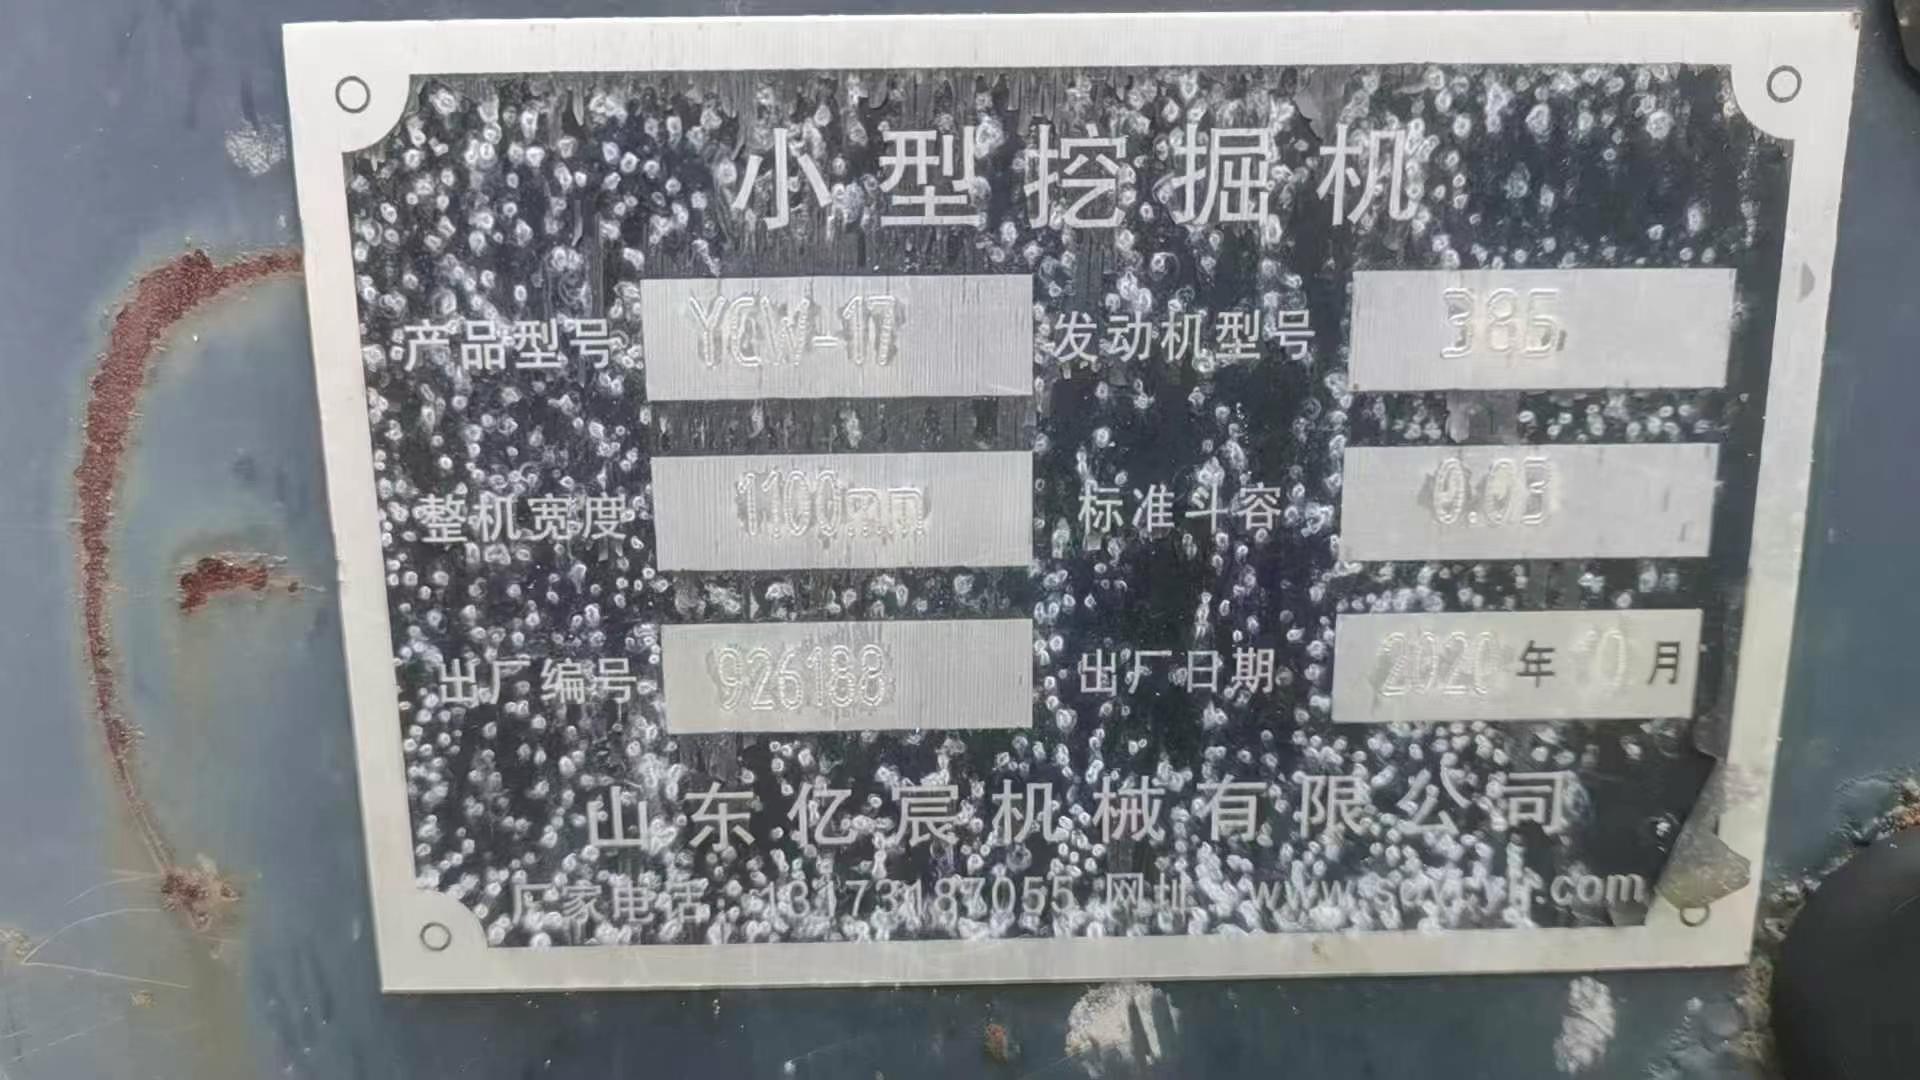 小型挖掘机
产品型号 YCW-17 发动机型号 385
整机宽度 1100mm 标准斗容 0.03
出厂编号 926188 出厂日期 2020年10月
山东亿宸机械有限公司
厂家电话：13173187055 网址